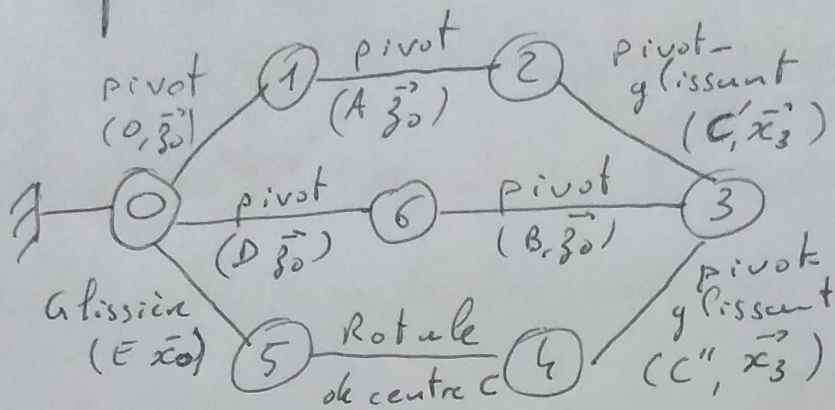 pivot
(O, z0)
1
pivot
(A z0)
2
pivot-
glissant
(C', x3)
0
pivot
(D z0)
6
pivot
(B, z0)
3
Glissière
(E x0)
5
Rotule
de centre C
4
pivot-
glissant
(C'', x3)